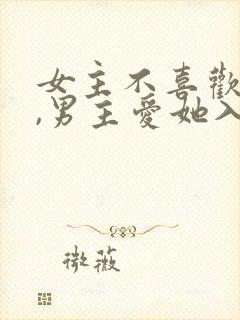 女主不喜歡
,男主愛她入
微薇